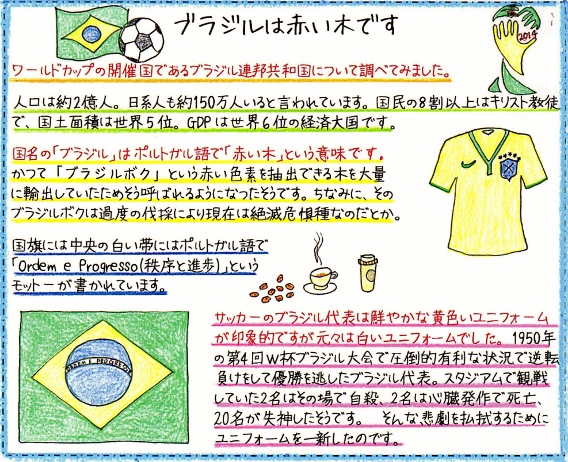 ブラジルは赤い木です
2014
ワールドカップの開催国であるブラジル連邦共和国について調べてみました。
人口は約2億人。日系人も約150万人いると言われています。国民の8割以上はキリスト教徒
で、国土面積は世界5位。GDPは世界6位の経済大国です。
国名の「ブラジル」はポルトガル語で「赤い木」という意味です。
かつて「ブラジルボク」という赤い色素を抽出できる木を大量
に輸出していたためそう呼ばれるようになったそうです。ちなみに、その
ブラジルボクは過度の伐採により現在は絶滅危惧種なのだとか。
国旗には中央の白い帯にはポルトガル語で
「Ordem e Progresso(秩序と進歩)」という
モットーが書かれています。
サッカーのブラジル代表は鮮やかな黄色いユニフォーム
が印象的ですが元々は白いユニフォームでした。1950年
の第4回W杯ブラジル大会で圧倒的有利な状況で逆転
負けをして優勝を逃したブラジル代表。スタジアムで観戦
していた2名はその場で自殺、2名は心臓発作で死亡、
20名が失神したそうです。 そんな悲劇を払拭するために
ユニフォームを一新したのです。